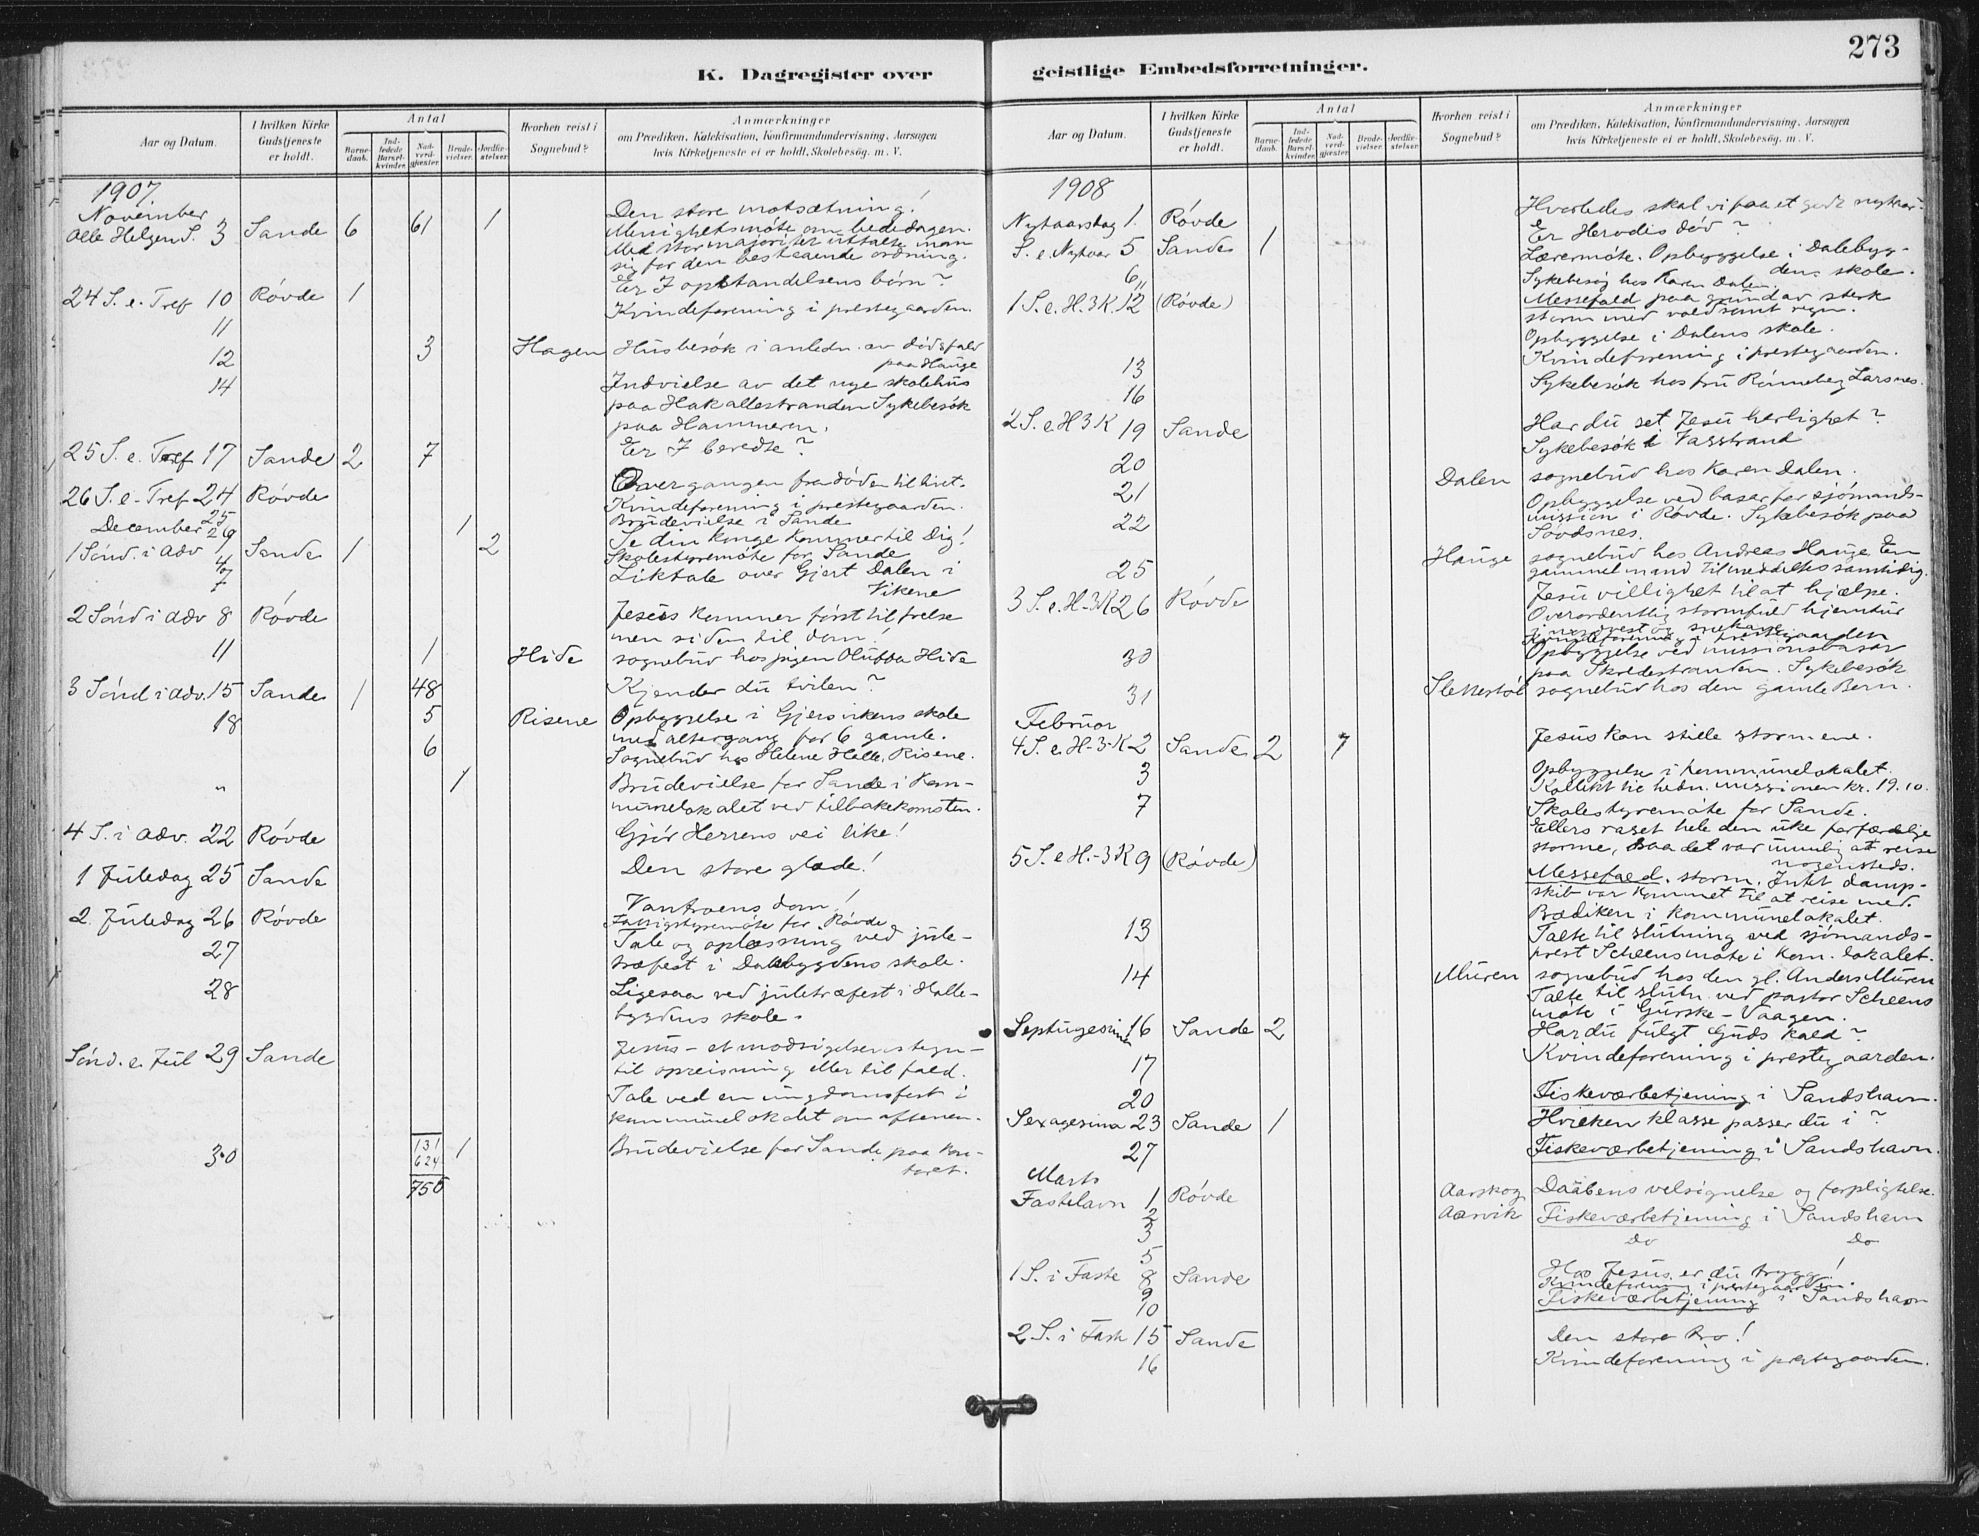 273
K. Dagregister over
geistlige Embedsforretninger.
Aar og Datum.
I hvilken Kirke Gudstjeneste er holdt.
Antal
Barne-daab.
Ind-ledede Barsel-kvinder.
Nad-verd-gjester.
Brude-vielser.
Jordfæ-stelser.
Hvorhen reist i Sognebud?
Anmærkninger
om Prædiken, Katekisation, Konfirmandundervisning, Aarsagen
hvis Kirketjeneste ei er holdt, Skolebesøg. m. V.
1907.
November
Den store motsætning!
Alle Helgen S. 3 Sande 6 61 1 Menighetsmøte om bededagen.
Med stor majoritet uttalte man
sig for den bestaaende ordning.
24 S. e. Tref 10 Røvde 1 Er I opstandelsens børn?
11 Kvindeforening i prestegaarden.
12 3 Hagen Husbesøk i anledn. av dødsfald
paa Hauge
14 Indvielse av det nye skolehus
paa Hakallestranden Sykebesøk
paa Hammeren.
25 S. e. Tref 17 Sande 2 7 Er I beredte?
26 S. e. Tref 24 Røvde Overgangen fra døden til livet.
25 Kvindeforening i prestegaarden.
December 29 1 Brudevielse i Sande
1 Sønd. i Adv 1 Sande 1 2 Se din konge kommer til Dig!
4 Skolestyremøte for Sande
7 Liktale over Gjert Dalen i
Vikene
2 Sønd i Adv 8 Røvde Jesus kommer først til frelse
men siden til dom!
11 1 Hide sognebud hos pigen Olubba Hide
3 Sønd i Adv. 15 Sande 1 48 Kjender du tvilen?
18 5 Risene Opbyggelse i Gjersvikens skole
6 med altergang for 6 gamle.
Sognebud hos Helene Helle, Risene.
" 1 Brudevielse for Sande i Kom-
munelokalet ved tilbakekomsten.
4 S. i Adv. 22 Røvde Gjør Herrens vei like!
1 Juledag 25 Sande Den store glæde!
2. Juledag 26 Røvde Vantroens dom!
Fattigstyremøte for Røvde
27 Tale og oplæsning ved jule-
træfest i Dalebygdens skole.
28 Ligesaa ved juletræfest i Halle-
bygdens skole.
Sønd. e. Jul 29 Sande Jesus - et modsigelsens tegn -
til opreisning eller til fald.
Tale ved en ungdomsfest i
kommunelokalet om aftenen.
30 131 1 Brudevielse for Sande paa kon-
624 toret.
755
Aar og Datum.
I hvilken Kirke Gudstjeneste er holdt.
Antal
Barne-daab.
Ind-ledede Barsel-kvinder.
Nad-verd-gjester.
Brude-vielser.
Jordfæ-stelser.
Hvorhen reist i Sognebud?
Anmærkninger
om Prædiken, Katekisation, Konfirmandundervisning, Aarsagen
hvis Kirketjeneste ei er holdt, Skolebesøg. m. V.
1908
Nytaarsdag 1. Røvde Hvorledes skal vi faa et godt nytaar.
S. e. Nytaar 5 Sande 1 Er Herodes død?
6 Lærermøte. Opbyggelse i Dalebyg-
dens skole.
" Sykebesøg hos Karen Dalen.
1 S. e. H. 3 K. 12 (Røvde) Messefald paa grund av sterk
storm med voldsomt regn.
Opbyggelse i Dalens skole.
13 Kvindeforening i prestegaarden.
16 Sykebesøk hos fru Rønneberg Larsnes.
2 S. e H 3 K 19 Sande Har du set Jesu herlighet?
Sykebesøk Vasstrand
20 Dalen sognebud hos Karen Dalen.
21 Opbyggelse ved basar for sjømands-
22 mission i Røvde. Sykebesøk paa
Søvdsnes.
25 Hauge sognebud hos Andreas Hauge. En
gammel mand tilmeddeltes samtidig.
3 S. e. H-3K 26 Røvde Jesu villighet til at hjælpe.
Overordentlig stormfuld hjemtur
i nordvest og snekave
Kvindeforening i prestegaarden
30 Opbyggelse ved missionsbasar
paa Skredestranden. Sykebesøk
31 Slettestøl sognebud hos den gamle Bern.
Februar
4 S. e. H-3-K 2 Sande 2 7 Jesus kan stille stormene.
3 Opbyggelse i kommunelokalet.
Kollekt til hedn. missionen kr. 19.10.
7 Skolestyremøte for Sande.
Ellers raset hele den uke forfærdelige
storme, saa det var umulig at reise
nogensteds.
5 S. e H.-3 K 9 (Røvde) Messefald. storm. Intet damp-
skib var kommet til at reise med.
Prædiken i kommunelokalet.
13 Talte til slutning ved sjømands-
prest Scheens møte i kom. lokalet.
14 Muren sognebud hos den gl. Anders Muren
Talte til slutn. ved pastor Scheens
møte i Gurske-Vaagen.
Septuagesima 16 Sande 2 Har du fulgt Guds kald?
17 Kvindeforening i prestegaarden.
20 Fiskeværbetjening i Sandshavn.
Sexagesima 23 Sande 1 Hvilken klasse passer du i?
27 Fiskeværbetjening i Sandshavn.
Marts
Fastelavn 1 Røvde Aarskog Daabens velsignelse og forpligtelse.
2 Aarvik Fiskeværbetjening i Sandshavn
3 Do Do
5
1 S. i Faste 8 Sande Hos Jesus er du trygg!
9 Kvindeforening i prestegaarden.
10 Fiskeværbetjening i Sandshavn
2 S. i Fast 15 Sande Den store tro!
16 Kvindeforening i prestegaarden.